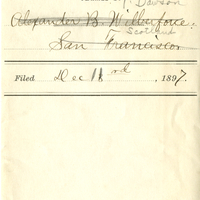 Dawson
Alexander B. Wilberforce.
Scotland
San Francisco
Filed Dec 11rd, 1897.